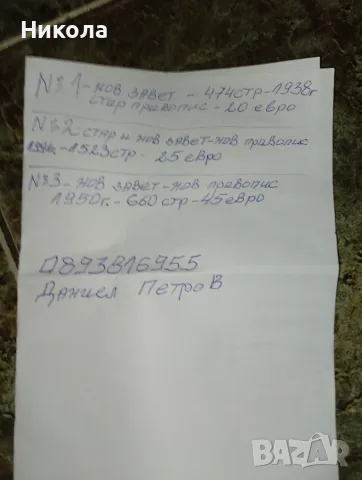 Никола
№ 1 - нов завет - 474стр - 1938г
стар правопис - 20 евро
№ 2 - стар и нов завет - нов правопис
- 1523 стр - 25 евро
№3 - нов завет - нов правопис
1950г. - 660 стр - 45 евро
0893816955
Даниел Петров
BAZAR